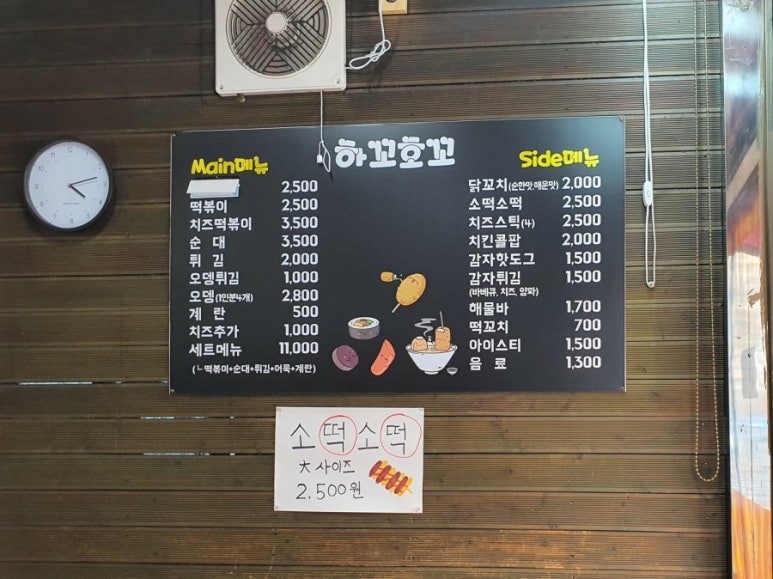 하꼬호꼬
Main메뉴
2,500
떡볶이 2,500
치즈떡볶이 3,500
순 대 3,500
튀 김 2,000
오뎅튀김 1,000
오뎅(1인분4개) 2,800
계 란 500
치즈추가 1,000
세트메뉴 11,000
(ㄴ떡볶이+순대+튀김+어묵+계란)
Side메뉴
닭꼬치(순한맛,매운맛) 2,000
소떡소떡 2,500
치즈스틱(4) 2,500
치킨콜팝 2,000
감자핫도그 1,500
감자튀김 1,500
(바베큐, 치즈, 양파)
해물바 1,700
떡꼬치 700
아이스티 1,500
음 료 1,300
소떡소떡
大 사이즈
2,500원